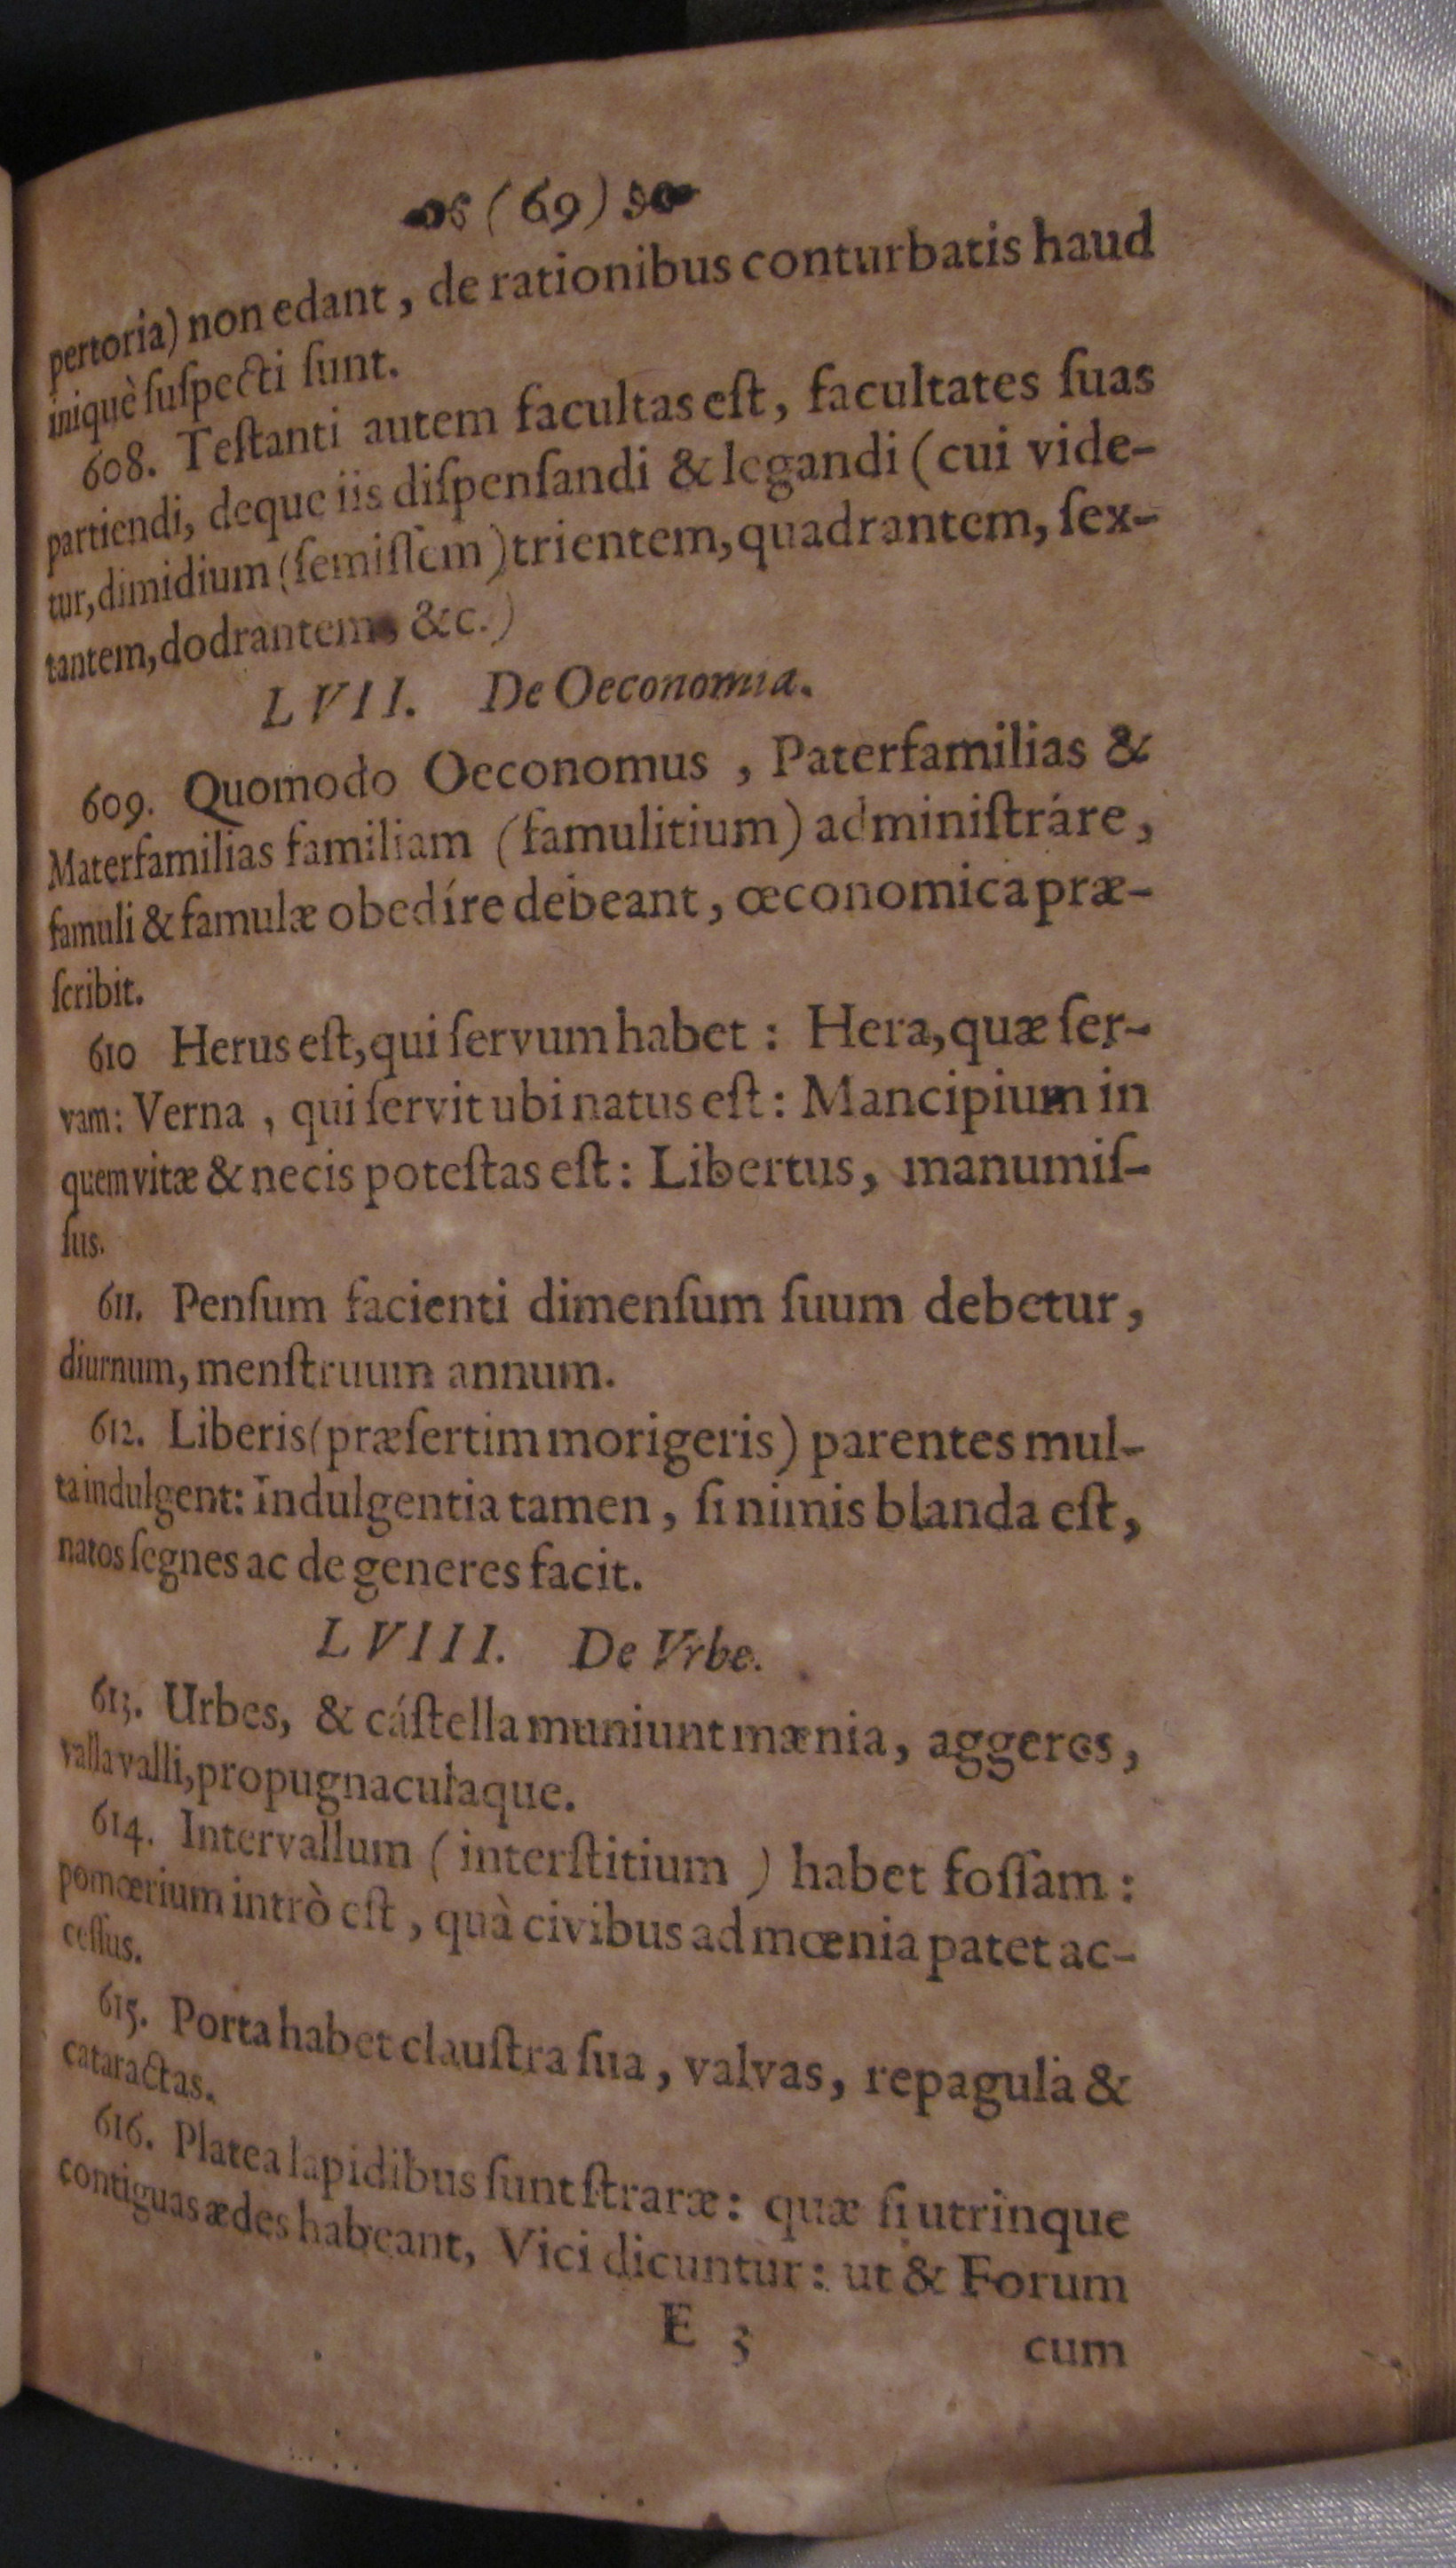 (69)
pertoria) non edant, de rationibus conturbatis haud
iniquè ſuſpecti ſunt.
608. Teſtanti autem facultas eſt, facultates ſuas
partiendi, deque iis diſpenſandi & legandi (cui vide-
tur, dimidium (ſemiſſem) trientem, quadrantem, ſex-
tantem, dodrantem, &c.)
LVII. De Oeconomia.
609. Quomodo Oeconomus, Paterfamilias &
Materfamilias familiam (famulitium) adminiſtráre,
famuli & famulæ obedíre debeant, œconomica præ-
ſcribit.
610 Herus eſt, qui ſervum habet: Hera, quæ ſer-
vam: Verna, qui ſervit ubi natus eſt: Mancipium in
quem vitæ & necis poteſtas eſt: Libertus, manumiſ-
ſus.
611. Penſum facienti dimenſum ſuum debetur,
diurnum, menſtruum annum.
612. Liberis (præſertim morigeris) parentes mul-
ta indulgent: Indulgentia tamen, ſi nimis blanda eſt,
natos ſegnes ac de generes facit.
LVIII. De Vrbe.
613. Urbes, & cáſtella muniunt mænia, aggeres,
valla valli, propugnaculaque.
614. Intervallum (interſtitium) habet foſſam:
pomœrium intrò eſt, quà civibus ad mœnia patet ac-
ceſſus.
615. Porta habet clauſtra ſua, valvas, repagula &
cataractas.
616. Platea lapidibus ſunt ſtraræ: quæ ſi utrinque
contiguas ædes habeant, Vici dicuntur: ut & Forum
E 3 cum